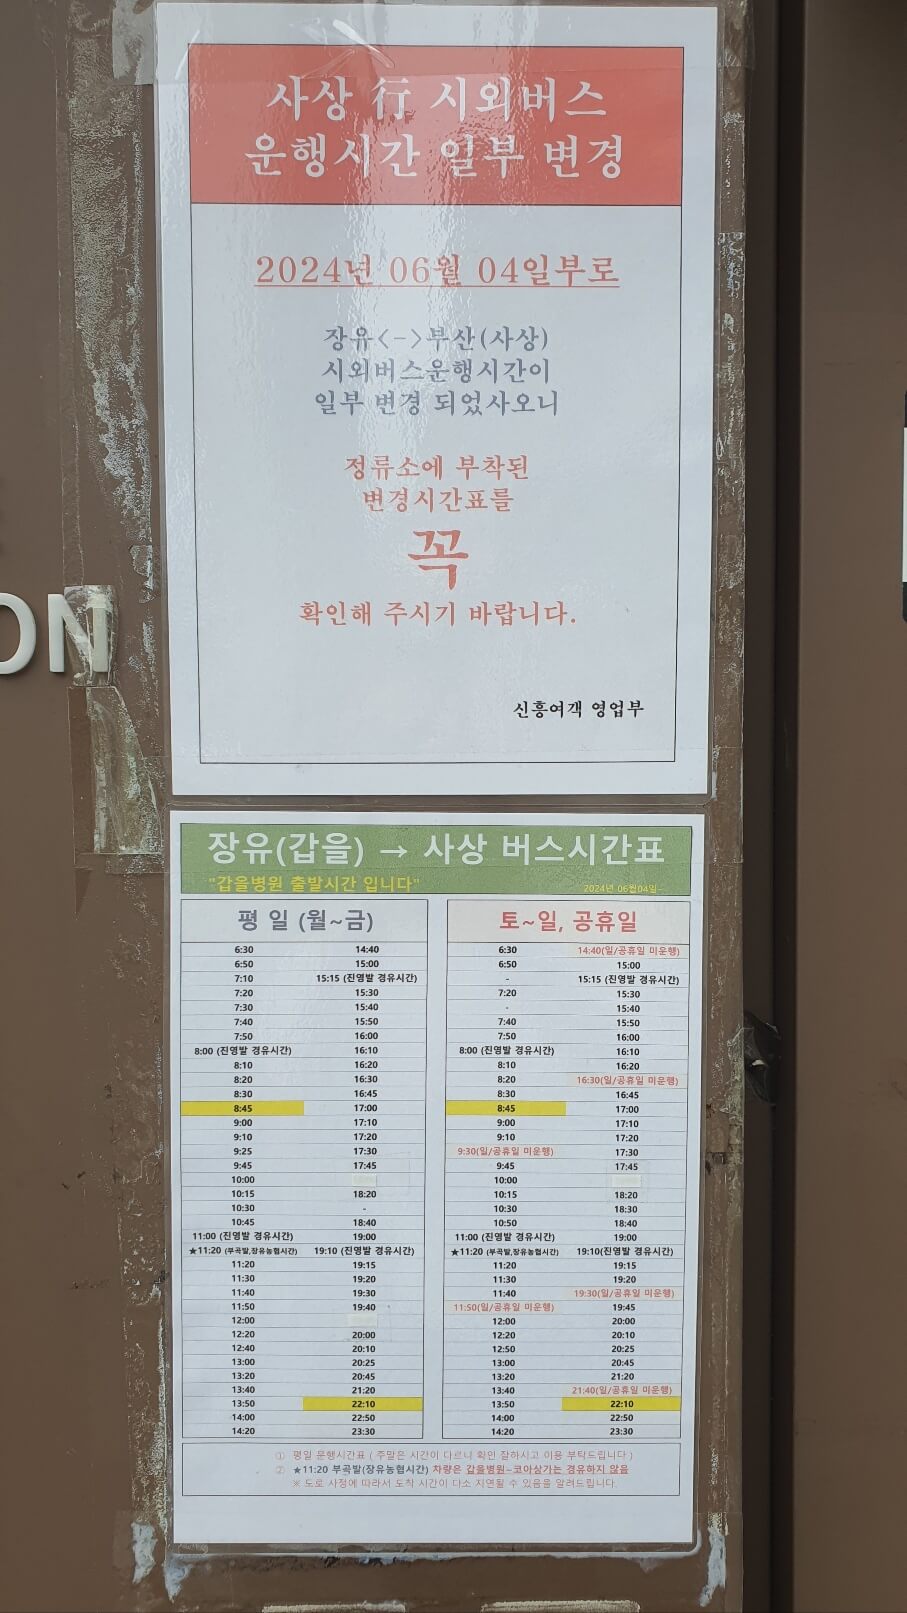 사상 行 시외버스
운행시간 일부 변경
2024년 06월 04일부로
장유<->부산(사상)
시외버스운행시간이
일부 변경 되었사오니
정류소에 부착된
변경시간표를
꼭
확인해 주시기 바랍니다.
신흥여객 영업부
ON
장유(갑을) → 사상 버스시간표
"갑을병원 출발시간 입니다"
2024년 06월04일~
평 일 (월~금)
6:30 14:40
6:50 15:00
7:10 15:15 (진영발 경유시간)
7:20 15:30
7:30 15:40
7:40 15:50
7:50 16:00
8:00 (진영발 경유시간) 16:10
8:10 16:20
8:20 16:30
8:30 16:45
8:45 17:00
9:00 17:10
9:10 17:20
9:25 17:30
9:45 17:45
10:00
10:15 18:20
10:30 -
10:45 18:40
11:00 (진영발 경유시간) 19:00
★11:20 (부곡발,장유농협시간) 19:10 (진영발 경유시간)
11:20 19:15
11:30 19:20
11:40 19:30
11:50 19:40
12:00
12:20 20:00
12:40 20:10
13:00 20:25
13:20 20:45
13:40 21:20
13:50 22:10
14:00 22:50
14:20 23:30
토~일, 공휴일
6:30 14:40(일/공휴일 미운행)
6:50 15:00
- 15:15 (진영발 경유시간)
7:20 15:30
- 15:40
7:40 15:50
7:50 16:00
8:00 (진영발 경유시간) 16:10
8:10 16:20
8:20 16:30(일/공휴일 미운행)
8:30 16:45
8:45 17:00
9:00 17:10
9:10 17:20
9:30(일/공휴일 미운행) 17:30
9:45 17:45
10:00
10:15 18:20
10:30 18:30
10:50 18:40
11:00 (진영발 경유시간) 19:00
★11:20 (부곡발,장유농협시간) 19:10(진영발 경유시간)
11:20 19:15
11:30 19:20
11:40 19:30(일/공휴일 미운행)
11:50(일/공휴일 미운행) 19:45
12:00 20:00
12:20 20:10
12:50 20:25
13:00 20:45
13:20 21:20
13:40 21:40(일/공휴일 미운행)
13:50 22:10
14:00 22:50
14:20 23:30
① 평일 운행시간표 ( 주말은 시간이 다르니 확인 잘하시고 이용 부탁드립니다 )
② ★11:20 부곡발(장유농협시간) 차량은 갑을병원~코아상가는 경유하지 않음
※ 도로 사정에 따라서 도착 시간이 다소 지연될 수 있음을 알려드립니다.